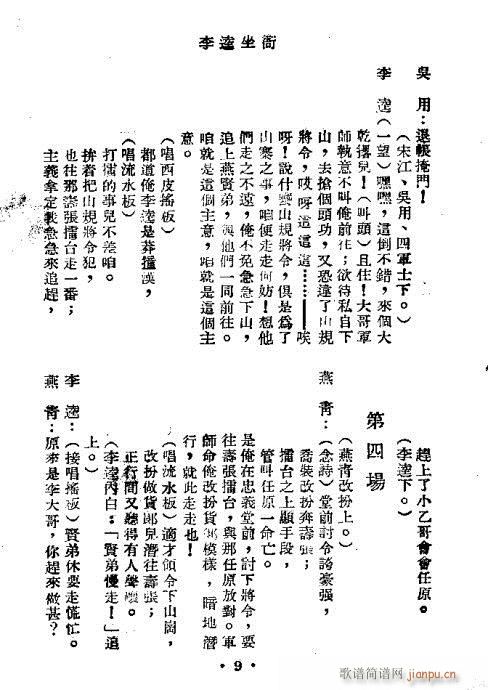 李逵坐衙
吳　用：退帳掩門！
（宋江、吳用、四軍士下。）
李　逵（一望）嘿嘿，這倒不錯，來個大
乾撂兒！（叫頭）且住！大哥軍
師執意不叫俺前往；欲待私自下
山，去搶個頭功，又恐違了山規
將令，哎呀這這這⋯⋯⋯唉
呀！說什麼山規將令，俱是爲了
山寨之事，咱便走走何妨！想他
們走之不遠，俺不免急急下山，
追上燕賢弟，與他們一同前往。
咱就是這個主意，咱就是這個主
意。
（唱西皮搖板）
都道俺李逵是莽撞漢，
（唱流水板）
打擂的事兒不差咱。
拚着把山規將令犯，
也往那壽張擂台走一番；
主義拿定我急急來追趕，
趕上了小乙哥會會任原。
（李逵下。）
第四場
（燕青改扮上。）
燕　青：（念詩）堂前討令誇豪强，
喬裝改扮奔壽張；
擂台之上顯手段，
管叫任原一命亡。
是俺在忠義堂前，討下將令，要
往壽張擂台，與那任原放對。軍
師命俺改扮貨郎模樣，暗地潛
行，就此走走也！
（唱流水板）適才領令下山崗，
改扮做貨郎兒潛往壽張；
正行間又聽得有人聲嚷。
（李逵內白：「賢弟慢走！」追
上。）
李　逵：（接唱搖板）賢弟休要走慌忙。
燕　青：原來是李大哥，你趕來做甚？
• 9 •
歌谱简谱网
jianpu.cn